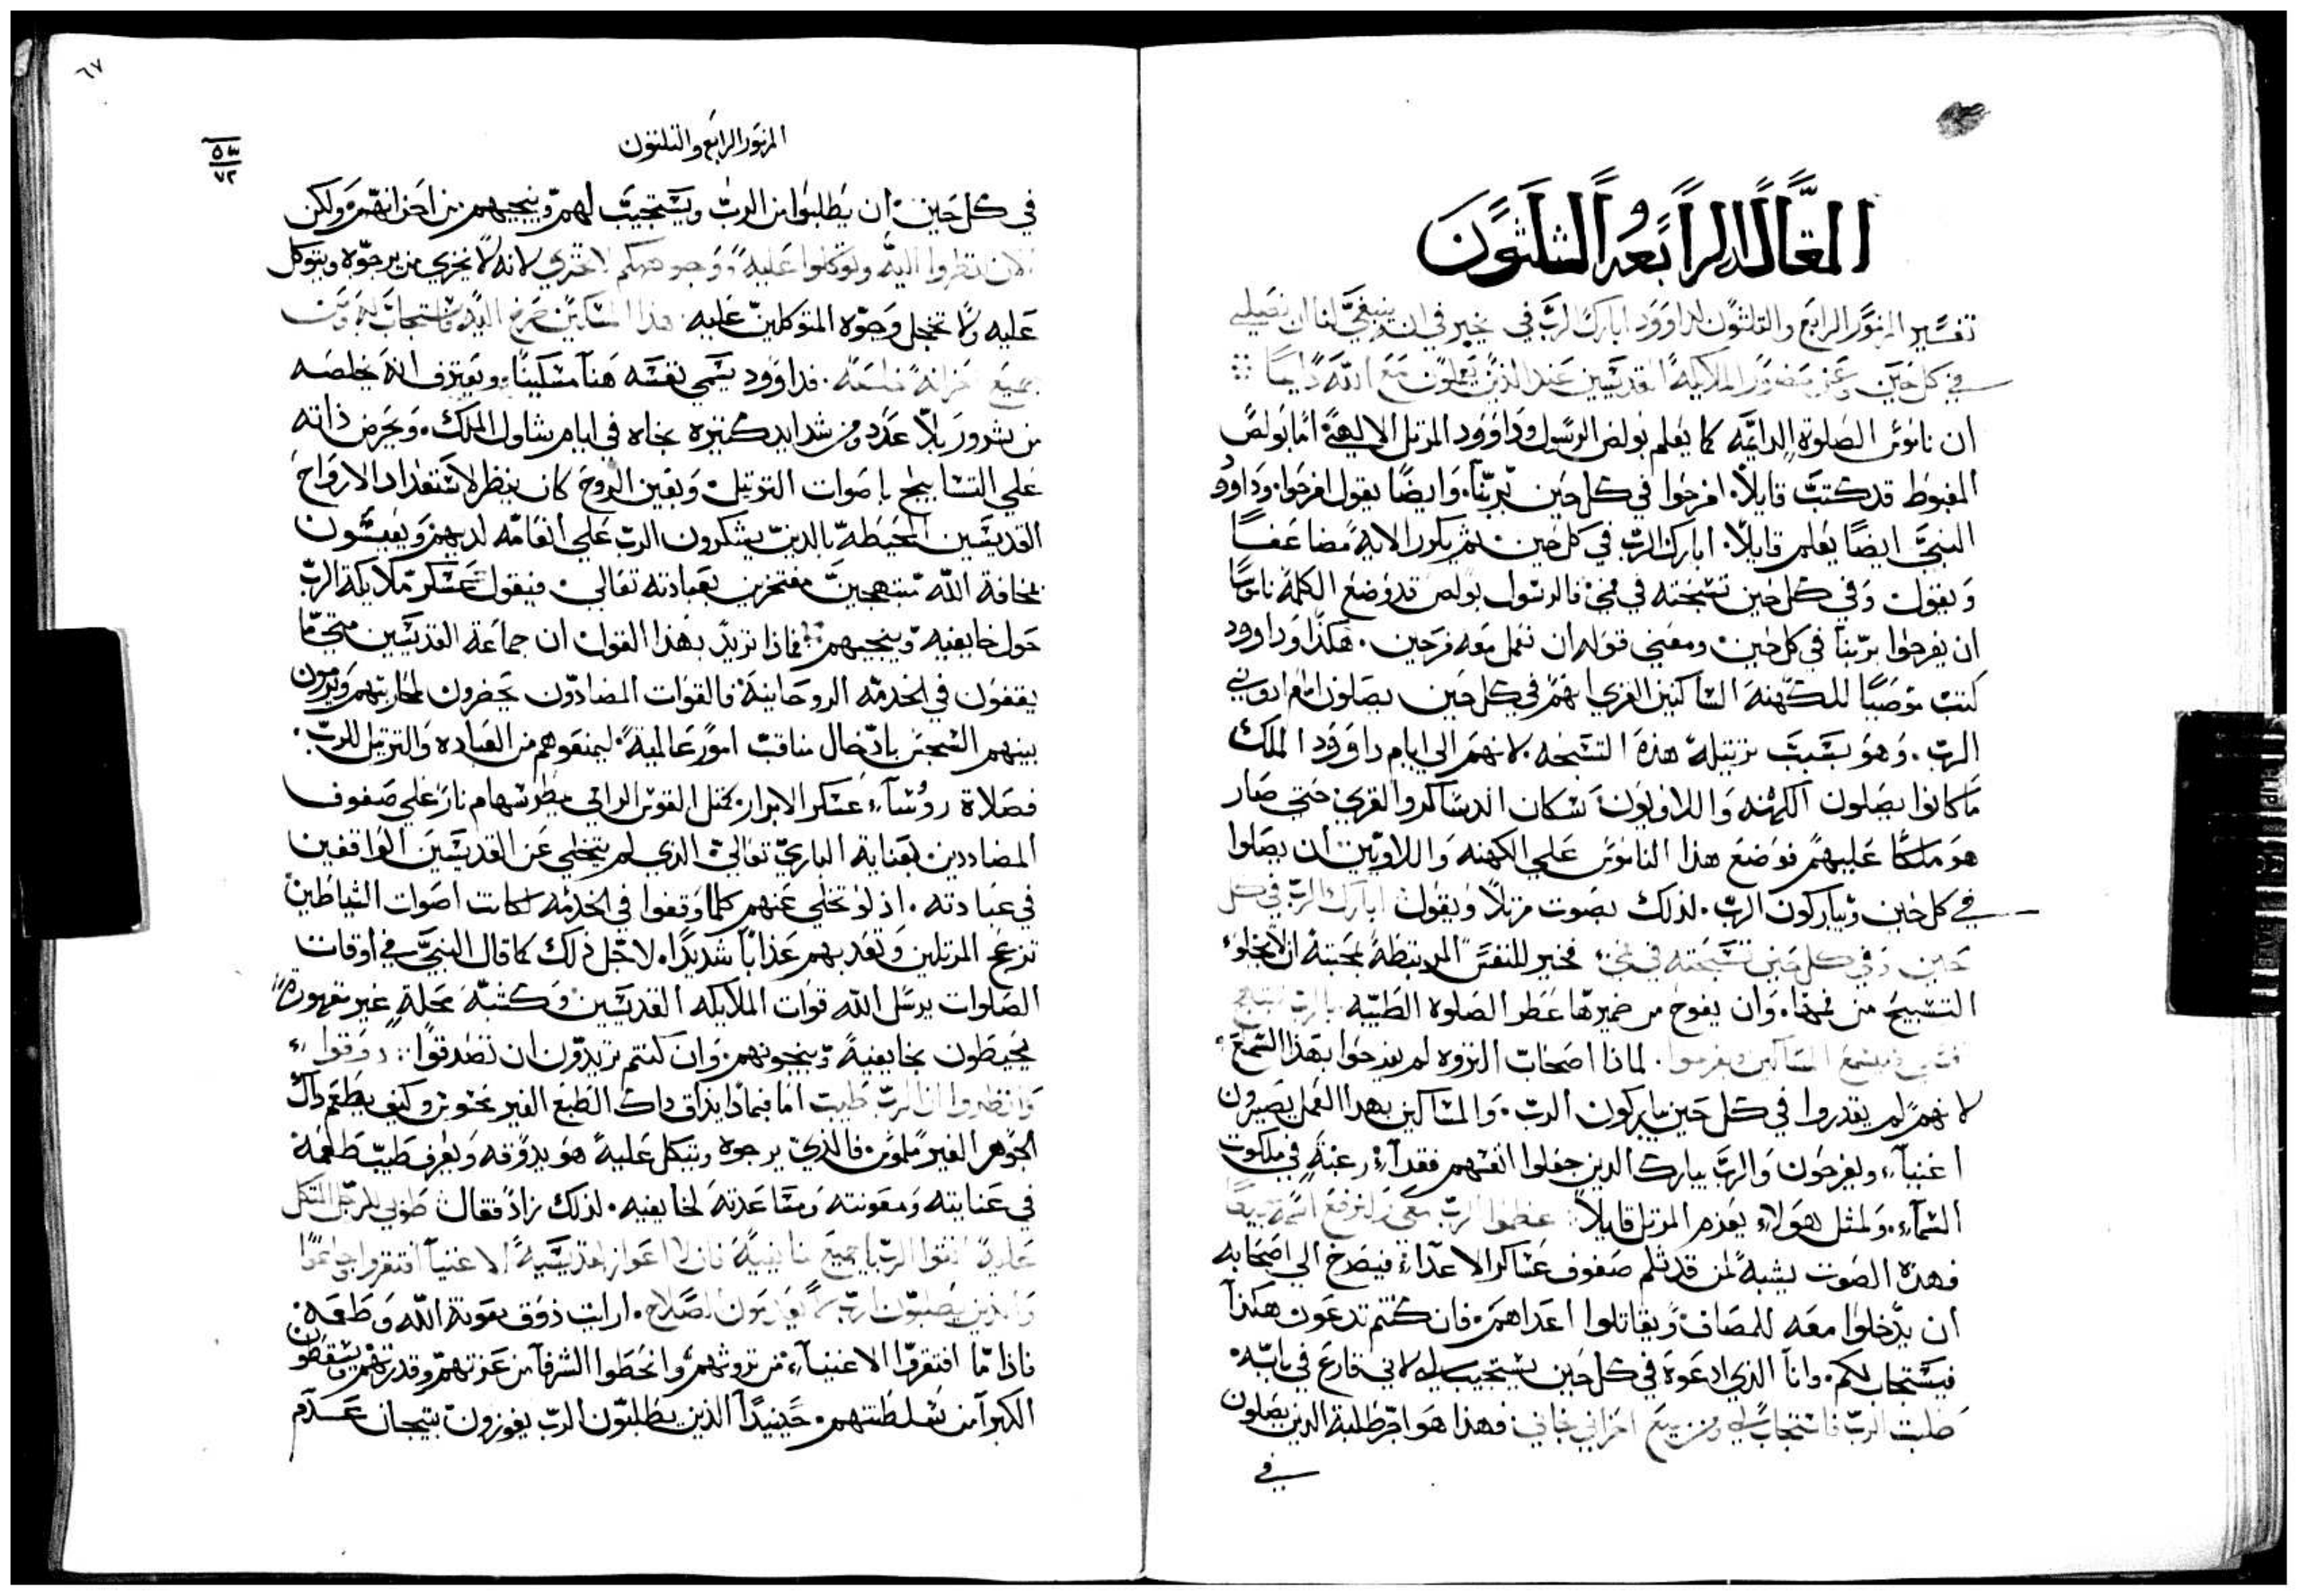 المقالة الرابعة والثلثون
تفسير المزمور الرابع والثلثون لداوود ابارك الرب في يخبر في انه ينبغي لنا ان نصلي
في كل حين وعن حضور الملايكة القديسين عند الذين يعملون مع الله دايما
ان ناموس الصلوة الدايمه كما يعلم بولص الرسول وداوود المرتل الالهي اما بولص
المغبوط قد كتب قايلا افرحوا في كل حين بربنا وايضا يقول افرحوا وداوود
النبي ايضا يعلم قايلا ابارك الرب في كل حين ثم يكرر الاية مضاعفا
ويقول وفي كل حين تسبحته في فمي فالرسول بولص قد وضع الكلمة ناموسا
ان يفرحوا بربنا في كل حين ومعني قوله ان نعمل معه فرحين هكذا وداوود
كتب موصيا للكهنة الساكنين القري انهم في كل حين يصلون امام
الرب وهو بسبب ترتيله هذه التسبحه لانهم الي ايام داوود الملك
ما كانوا يصلون الكهنه واللاويون سكان الدساكر والقري حتي صار
هو ملكا عليهم فوضع هذا الناموس علي الكهنه واللاويين ان يصلوا
في كل حين ويباركون الرب لذلك بصوت مرتلا ويقول ابارك الرب في كل
حين وفي كل حين تسبحته في فمي فخير للنفس المرتبطة بمحبته ان لا يخلو
التسبيح من فمها وان يفوح من ضميرها عطر الصلوة الطيبه بالرب تبتهج
نفسي فيسمع المساكين ويفرحوا لماذا اصحاب الثروه لم يفرحوا بهذا السمع
لانهم لم يقدروا في كل حين يباركون الرب والمساكين بهذا العمل يصيرون
اغنياء ويفرحون والرب يبارك الذين جعلوا انفسهم فقراء رغبة في ملكوت
السماء ولمثل هولاء يعزم المرتل قايلا عظموا الرب معي ولنرفع اسمه جميعا
فهذه الصوت يشبه لمن قد ثلم صفوف عساكر الاعداء فيصرخ الي اصحابه
ان يدخلوا معه للمصاف ويقاتلوا اعداهم فان كنتم تدعون هكذا
فيستجاب لكم وانا الذي ادعوه في كل حين يستجيب لي لاني قارع في بابه
طلبت الرب فاستجاب لي ومن جميع احزاني نجاني فهذا هو اجر طلبة الذين يصلون
في
٦٧
المزمور الرابع والثلثون
٥٣
٧٢
في كل حين ان يطلبوا من الرب ويستجيب لهم وينجيهم من احزانهم ولكن
الان انظروا اليه وتوكلوا عليه ووجوهكم لا تخزي لانه لا يخزي من يرجوه ويتوكل
عليه ولا تخجل وجوه المتوكلين عليه هذا المسكين صرخ اليه فاستجاب له ومن
جميع احزانه خلصه فداوود يسمي نفسه هنا مسكينا ويعترف انه يخلصه
من شرور بلا عدد ومن شدايد كثيره نجاه في ايام شاول الملك ويحرض ذاته
علي التسابيح باصوات الترتيل وبعين الروح كان ينظر لاستعداد الارواح
القديسين المحيطة بالذين يشكرون الرب علي انعامه لديهم ويعيشون
بمخافة الله مبتهجين مفتخرين بعبادته تعالي فيقول عسكر ملايكة الرب
حول خايفيه وينجيهم فماذا تريد بهذا القول ان جماعة القديسين متي ما
يقفون في الخدمه الروحانية فالقوات المضادون يحضرون لمحاربتهم ويرمون
بينهم السجس بادخال امور عالمية ليمنعوهم من العباده والترتيل للرب
فصلاة روساء عسكر الابرار كمثل القوس الرامي يمطر سهام نار علي صفوف
المضاددين بعناية الباري تعالي الذي لم يتخلي عن القديسين الواقفين
في عبادته اذ لو تخلي عنهم كلما وقفوا في الخدمه لكانت اصوات الشياطين
تزعج المرتلين وتعذبهم عذابا شديدا لاجل ذلك كما قال النبي في اوقات
الصلوات يرسل الله قوات الملايكه القديسين وكتيبه محلة غير مقهورة
يحيطون بخايفيه وينجونهم وان كنتم تريدون ان تصدقوا ذوقوا
وانظروا ان الرب طيب اما فبماذا يذاق ذاك الطبع الغير محتوي وكيف يطعم ذاك
الجوهر الغير ملموس فالذي يرجوه ويتكل عليه هو يذوقه ويعرف طيب طعمه
في عنايته ومعونته ومساعدته لخايفيه لذلك زاد فقال طوبي للرجل المتكل
عليه اتقوا الرب يا جميع قديسيه الاغنيا افتقروا وجاعوا
والذين يطلبون الرب لا يعدمون الصلاح ارايت ذوق معونة الله وطعمه
فاذا ما افتقروا الاغنياء من ثروتهم وانحطوا الشرفا من عزتهم وقدرتهم ويسقطون
الكبرآ من سلطتهم حينيذا الذين يطلبون الرب يفوزون بتيجان عدم